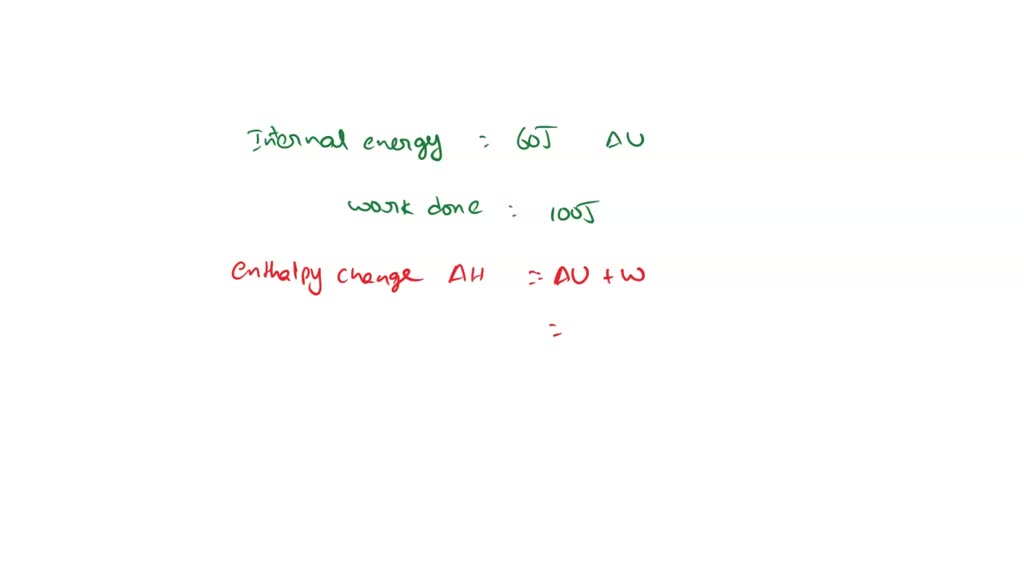 Internal energy = 60J ΔU
work done : 100J
Enthalpy change ΔH = ΔU + W
=